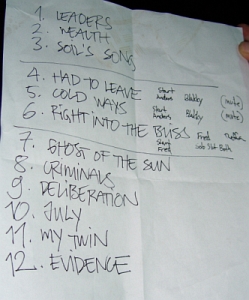 1. LEADERS
2. WEALTH
3. SOIL'S SONG
4. HAD TO LEAVE Start Anders Blakky (mute)
5. COLD WAYS Start Anders Blakky (mute)
6. RIGHT INTO THE BLISS Fred
7. GHOST OF THE SUN Start Fred
8. CRIMINALS
9. DELIBERATION
10. JULY
11. MY TWIN
12. EVIDENCE